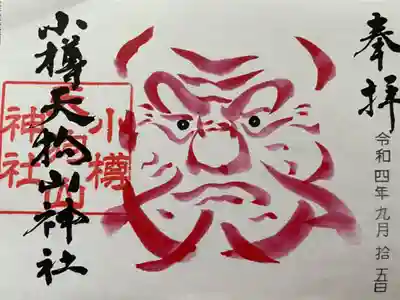 奉拝
令和四年九月拾五日
小樽天狗山神社
小樽
天狗山
神社